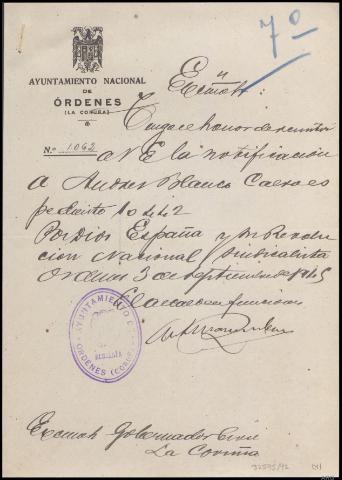 7º
AYUNTAMIENTO NACIONAL
DE
ÓRDENES
(LA CORUÑA)
N.º 1062
Excmº Sr:
Tengo el honor de remitir
a V E la notificación
a Andres Blanco Caexpe
pediento 10 de 42
Por Dios España y su Revolu
cion Nacional Sindicalista
Ordenes 3 de septiembre de 1945
El alcalde en funciones
AYUNTAMIENTO DE
ALCALDÍA
ÓRDENES (CORUÑA)
Excmoh Gobernador Civil
La Coruña
32595/92